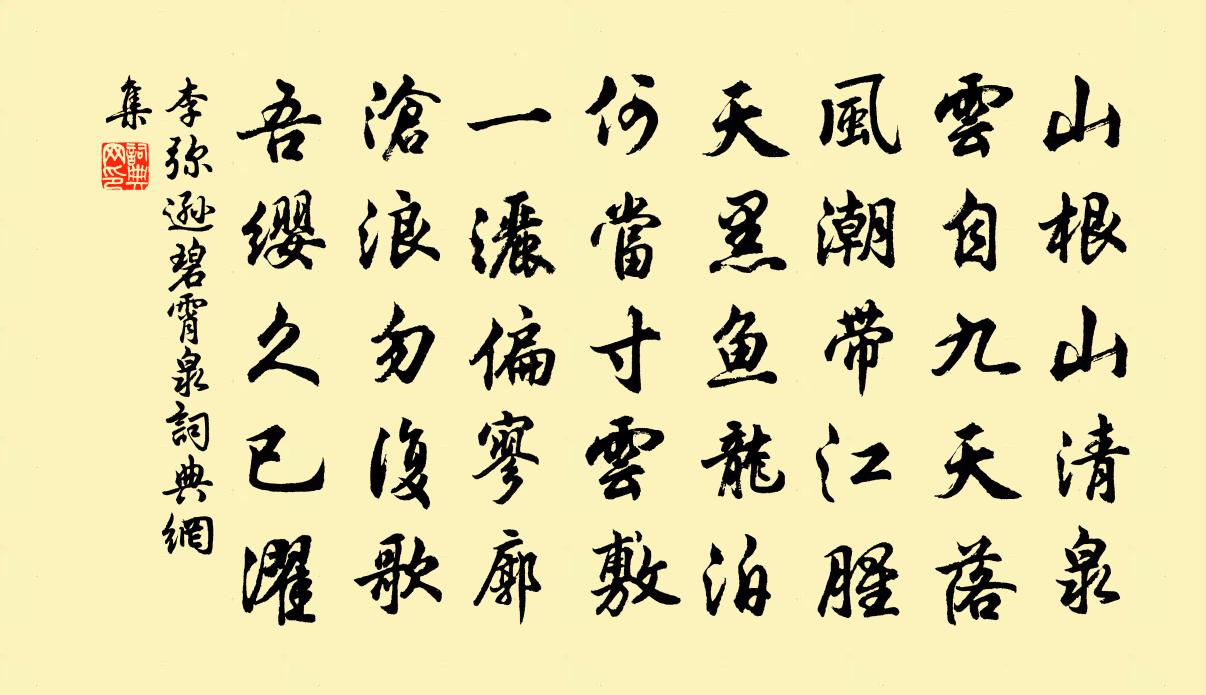 山根山清泉
雲自九天落
風潮帶江腥
天黑魚龍泊
何當寸雲敷
一灑偏寥廓
滄浪勿復歌
吾纓久已濯
李弥遜碧霄泉詞典網
集
詞典網印